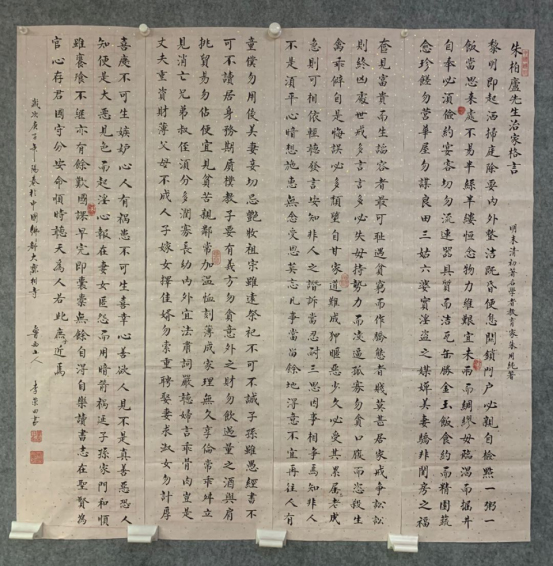 朱柏廬先生治家格言
明末清初著名學者教育家朱用純著
黎明即起洒掃庭除要內外整潔既昏便息關鎖門户必親自檢點一粥一
飯當思來處不易半絲半縷恒念物力維艱宜未雨而綢繆毋臨渴而掘井
自奉必須儉約宴客切勿流連器具質而潔瓦缶勝金玉飲食約而精園蔬
愈珍饈勿營華屋勿謀良田三姑六婆實淫盜之媒婢美妾嬌非閨房之福
奩見富貴而生諂容者最可恥遇貧窮而作驕態者賤莫甚居家戒爭訟訟
則終凶處世戒多言言多必失毋恃勢力而凌逼孤寡勿貪口腹而恣殺生
禽乖僻自是悔誤必多頹惰自甘家道難成狎暱惡少久必受其累屈志老成
急則可相依輕聽發言安知非人之譖訴當忍耐三思因事相爭焉知非人
不是須平心暗想施惠無念受恩莫忘凡事當留餘地得意不宜再往人有
童僕勿用俊美妻妾切忌艷妝祖宗雖遠祭祀不可不誠子孫雖愚經書不
可不讀居身務期質樸教子要有義方勿貪意外之財勿飲過量之酒與肩
挑貿易勿佔便宜見貧苦親鄰當加溫恤刻薄成家理無久享倫常乖舛立
見消亡兄弟叔侄須分多潤寡長幼內外宜法肅詞嚴聽婦言乖骨肉豈是
丈夫重資財薄父母不成人子嫁女擇佳婿勿索重聘娶妻求淑女勿計厚
喜慶不可生嫉妒心人有禍患不可生喜幸心善欲人見不是真善惡恐人
知便是大惡見色而起淫心報在妻女匿怨而用暗箭禍延子孫家門和順
雖饔飧不繼亦有餘歡國課早完即囊橐無餘自得至樂讀書志在聖賢為
官心存君國守分安命順時聽天為人若此庶近焉
歲次庚子年陽春於中國大槐樹